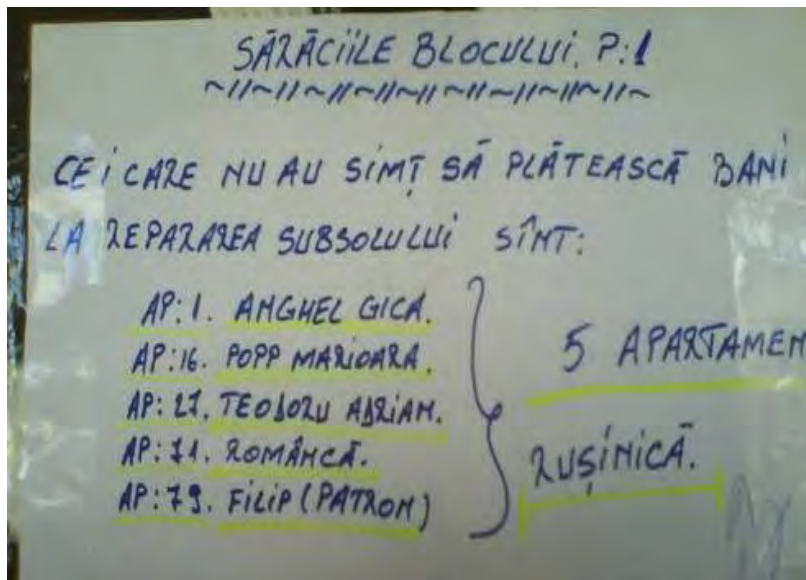 SĂRĂCIILE BLOCULUI. P:1
~11~11~11~11~11~11~11~11~11~
CEI CARE NU AU SIMȚ SĂ PLĂTEASCĂ BANI
LA REPARAREA SUBSOLULUI SÎNT:
AP:1. ANGHEL GICA.
AP:16. POPP MARIOARA.
AP:27. TEODORU ADRIAN.
AP:71. ROMÂNCĂ.
AP:79. FILIP (PATRON)
5 APARTAMEN
RUȘINICĂ.